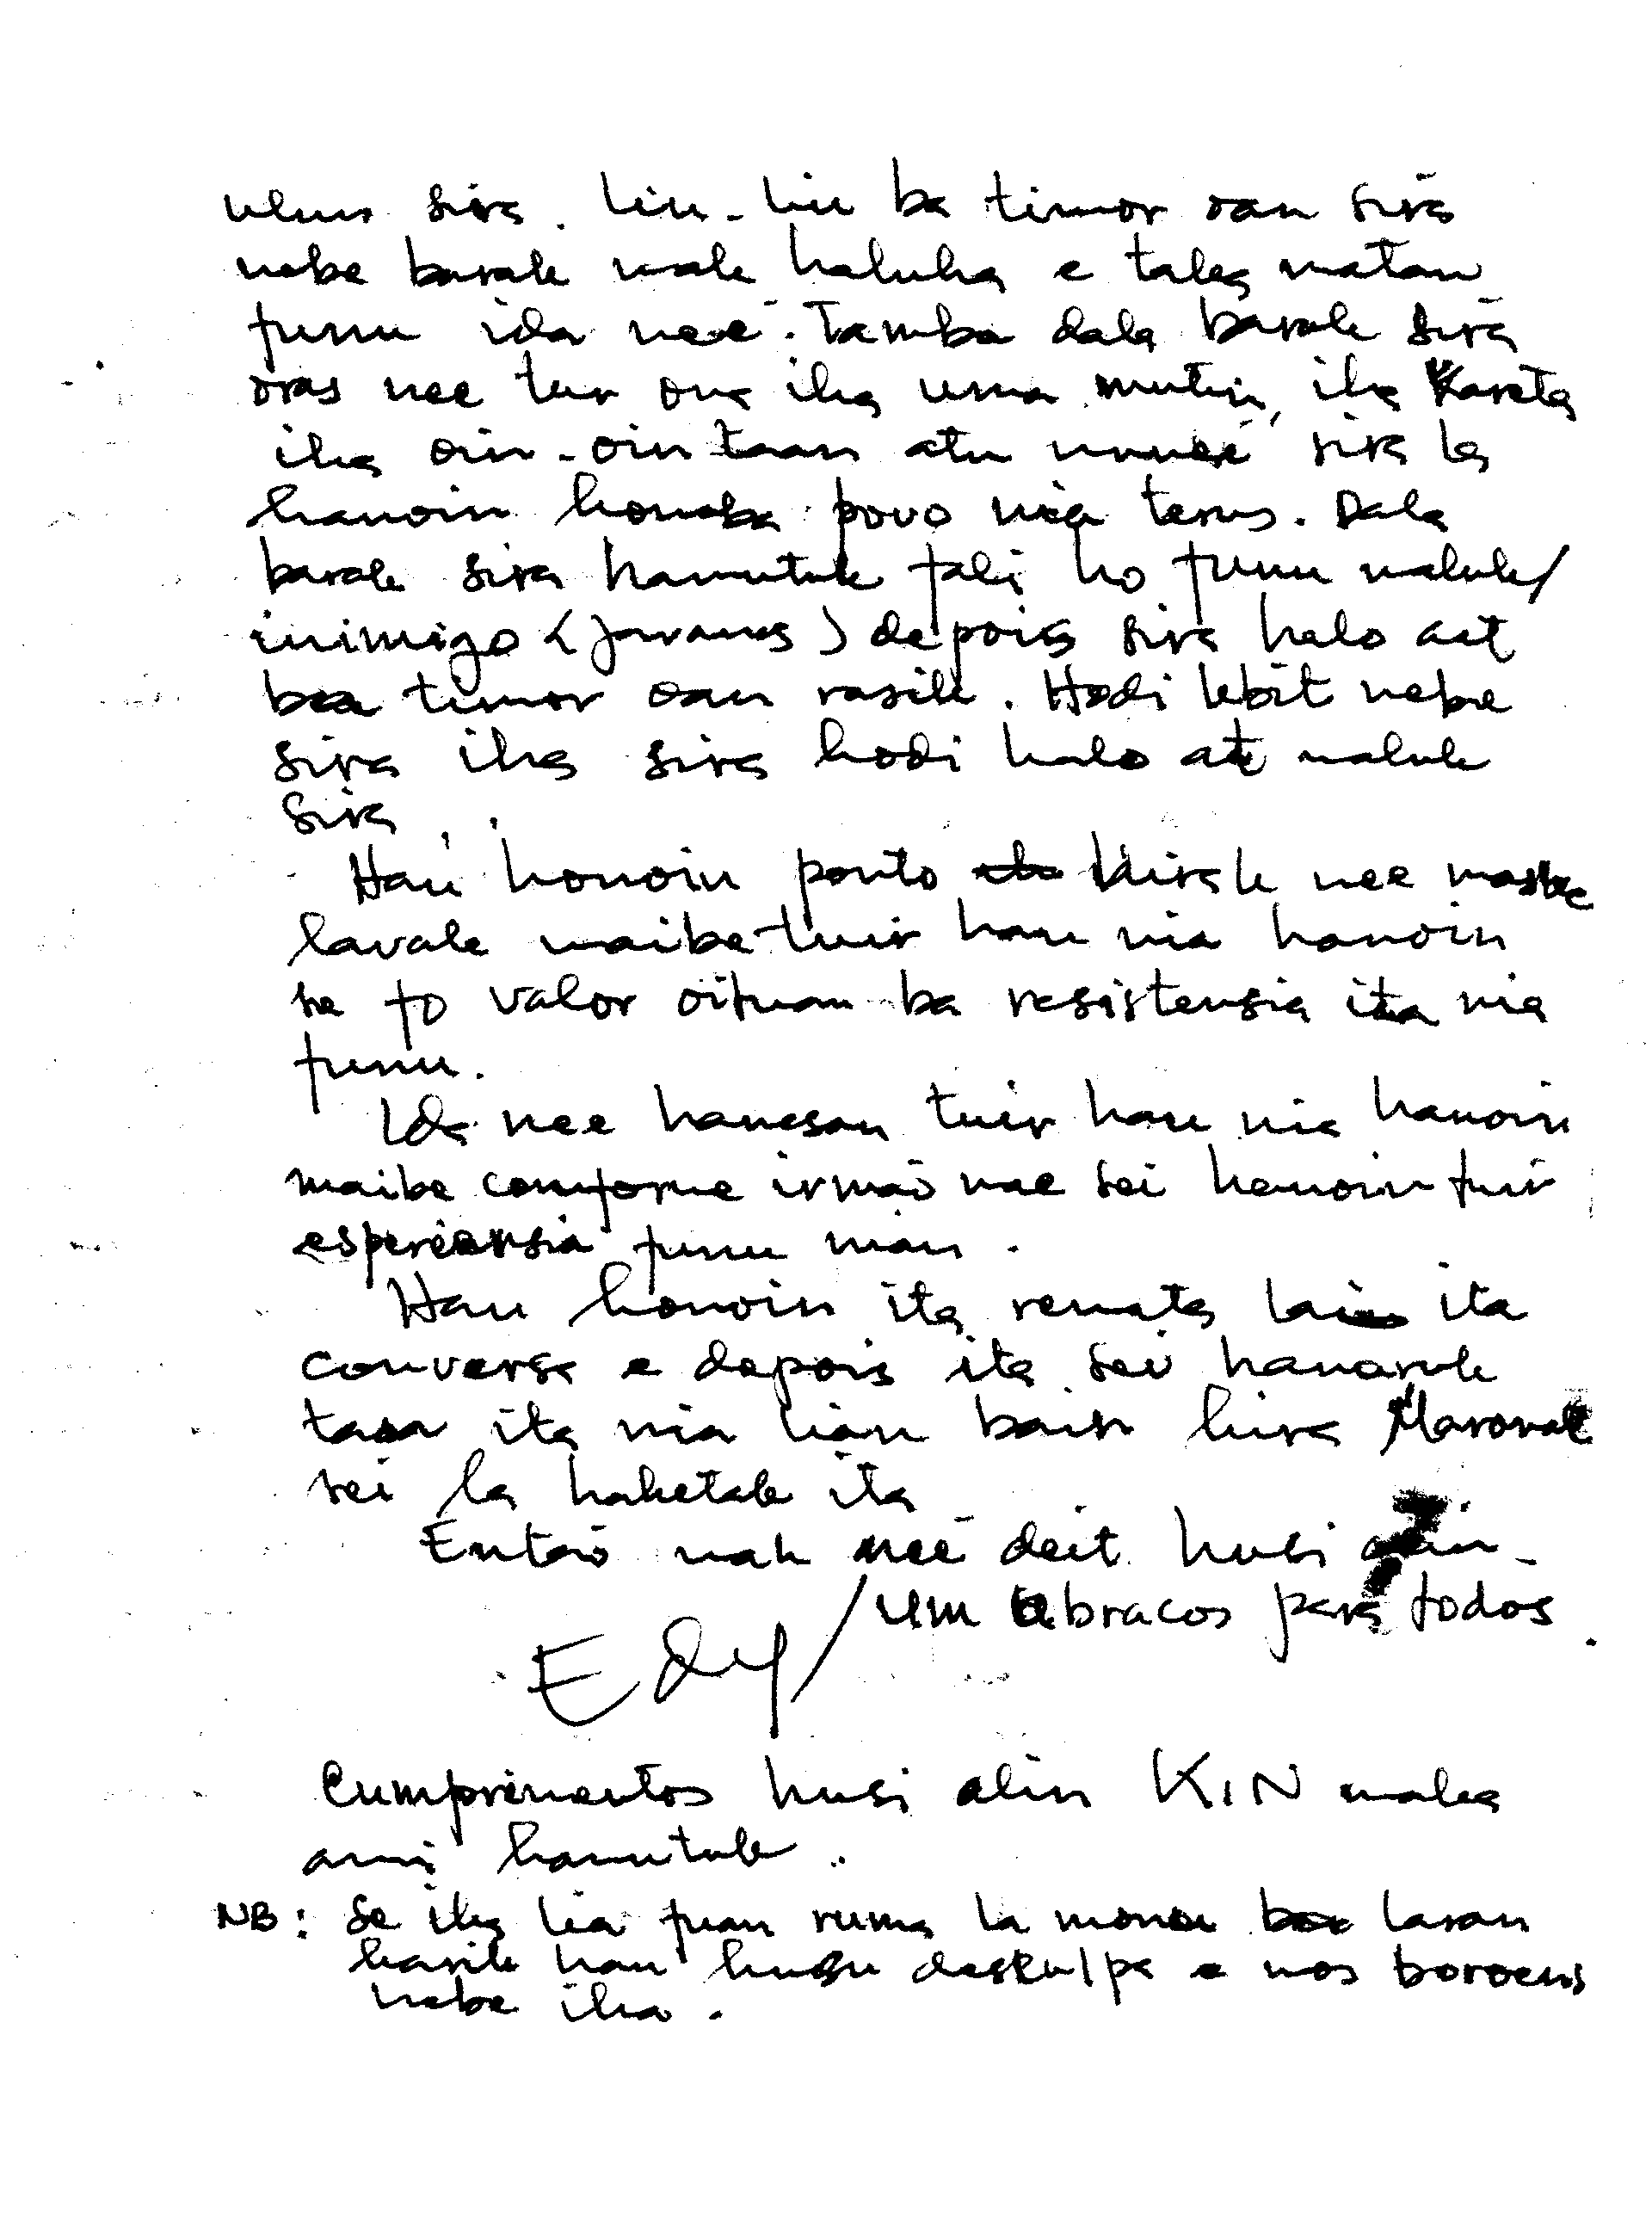 ulun sira. liu-liu ba timor oan sira
nebe barak mak haluha e taka matan
funu ida nee. Tamba dala barak sira
oras nee tur ona iha uma mutin, iha Kareta
iha oin-oin taan atu nunee sira la
hanoin hona ba povo nia terus. Dala
barak sira hamutuk fali ho funu maluk/
inimigo (javanes) depois sira halo aat
ba timor oan rasik. Hodi kbit nebe
sira iha sira hodi halo at maluk
sira.
Hau hanoin ponto hirak nee maske
lavak maibe tuir hau nia hanoin
se fo valor oituan ba resistensia ita nia
funu.
Ida nee hanesan tuir hau nia hanoin
maibe conforme irmaõ mae sei hanoin tuir
esperiensia funu nian.
Hau hanoin ita remata lai ita
conversa e depois ita sei hanaruk
tasa ita nia lian bain hira Maromak
sei la haketak ita
Entaõ mak nee deit husi alin-
um abracos para todos.
Edy/
Cumprimentos husi alin KIN maka
ami hamutuk.
NB: Se iha lia fuan ruma la monu ba laran
karik hau husu deskulpa e nos boroens
nebe iha.